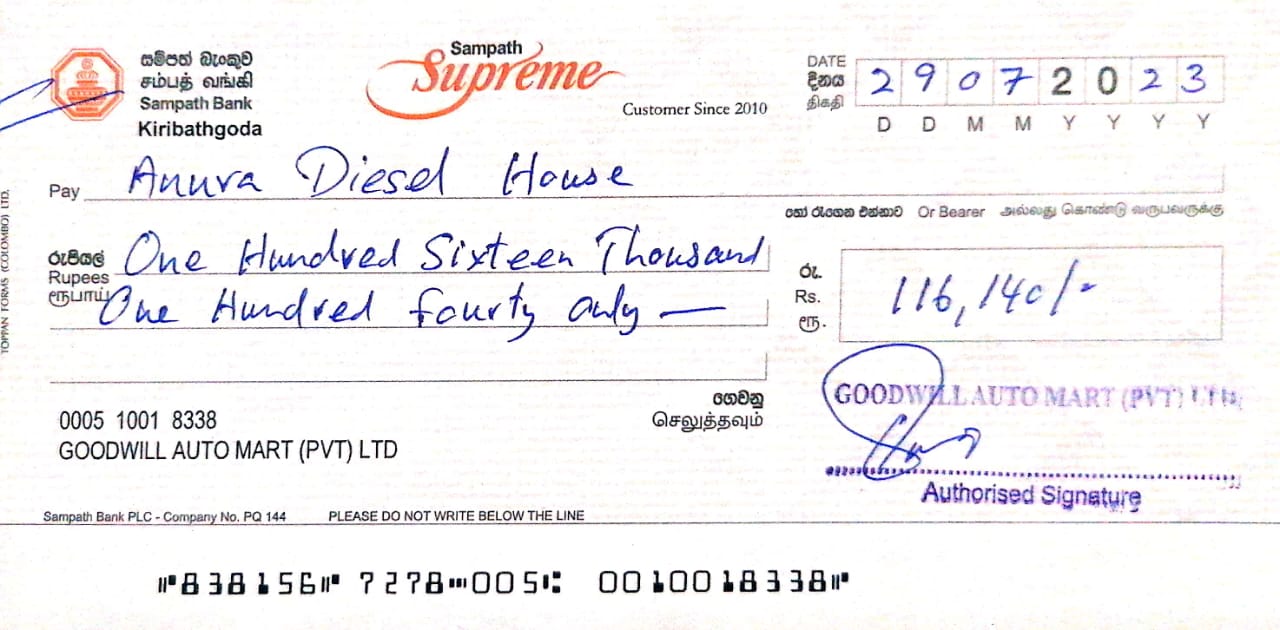 සම්පත් බැංකුව
சம்பத் வங்கி
Sampath Bank
Kiribathgoda
Sampath
Supreme
Customer Since 2010
DATE
දිනය
திகதி
2 9 0 7 2 0 2 3
D D M M Y Y Y Y
Pay Anura Diesel House
හෝ රැගෙන එන්නාට Or Bearer அல்லது கொண்டு வருபவருக்கு
රුපියල්
Rupees
ரூபாய்
One Hundred Sixteen Thousand
One Hundred fourty only —
රු.
Rs.
ரூ.
116,140/-
ගෙවනු
செலுத்தவும்
0005 1001 8338
GOODWILL AUTO MART (PVT) LTD
GOODWILL AUTO MART (PVT) LTD
Authorised Signature
Sampath Bank PLC - Company No. PQ 144 PLEASE DO NOT WRITE BELOW THE LINE
TOPPAN FORMS (COLOMBO) LTD.
⑈838156⑈ 7278⑉005⑆ 0010018338⑈